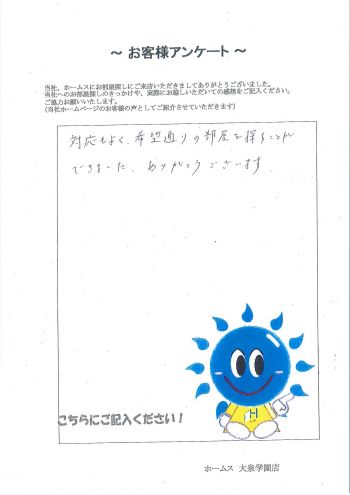 ～ お客様アンケート ～
当社、ホームスにお部屋探しにご来店いただきましてありがとうございました。
当社へのお部屋探しのきっかけや、実際にお越しいただいての感想をご記入ください。
ご協力お願いいたします。
(当社ホームページのお客様の声としてご紹介させていただきます)
対応もよく、希望通りの部屋を探すことが
できました。ありがとうございます。
H
こちらにご記入ください！
ホームス 大泉学園店